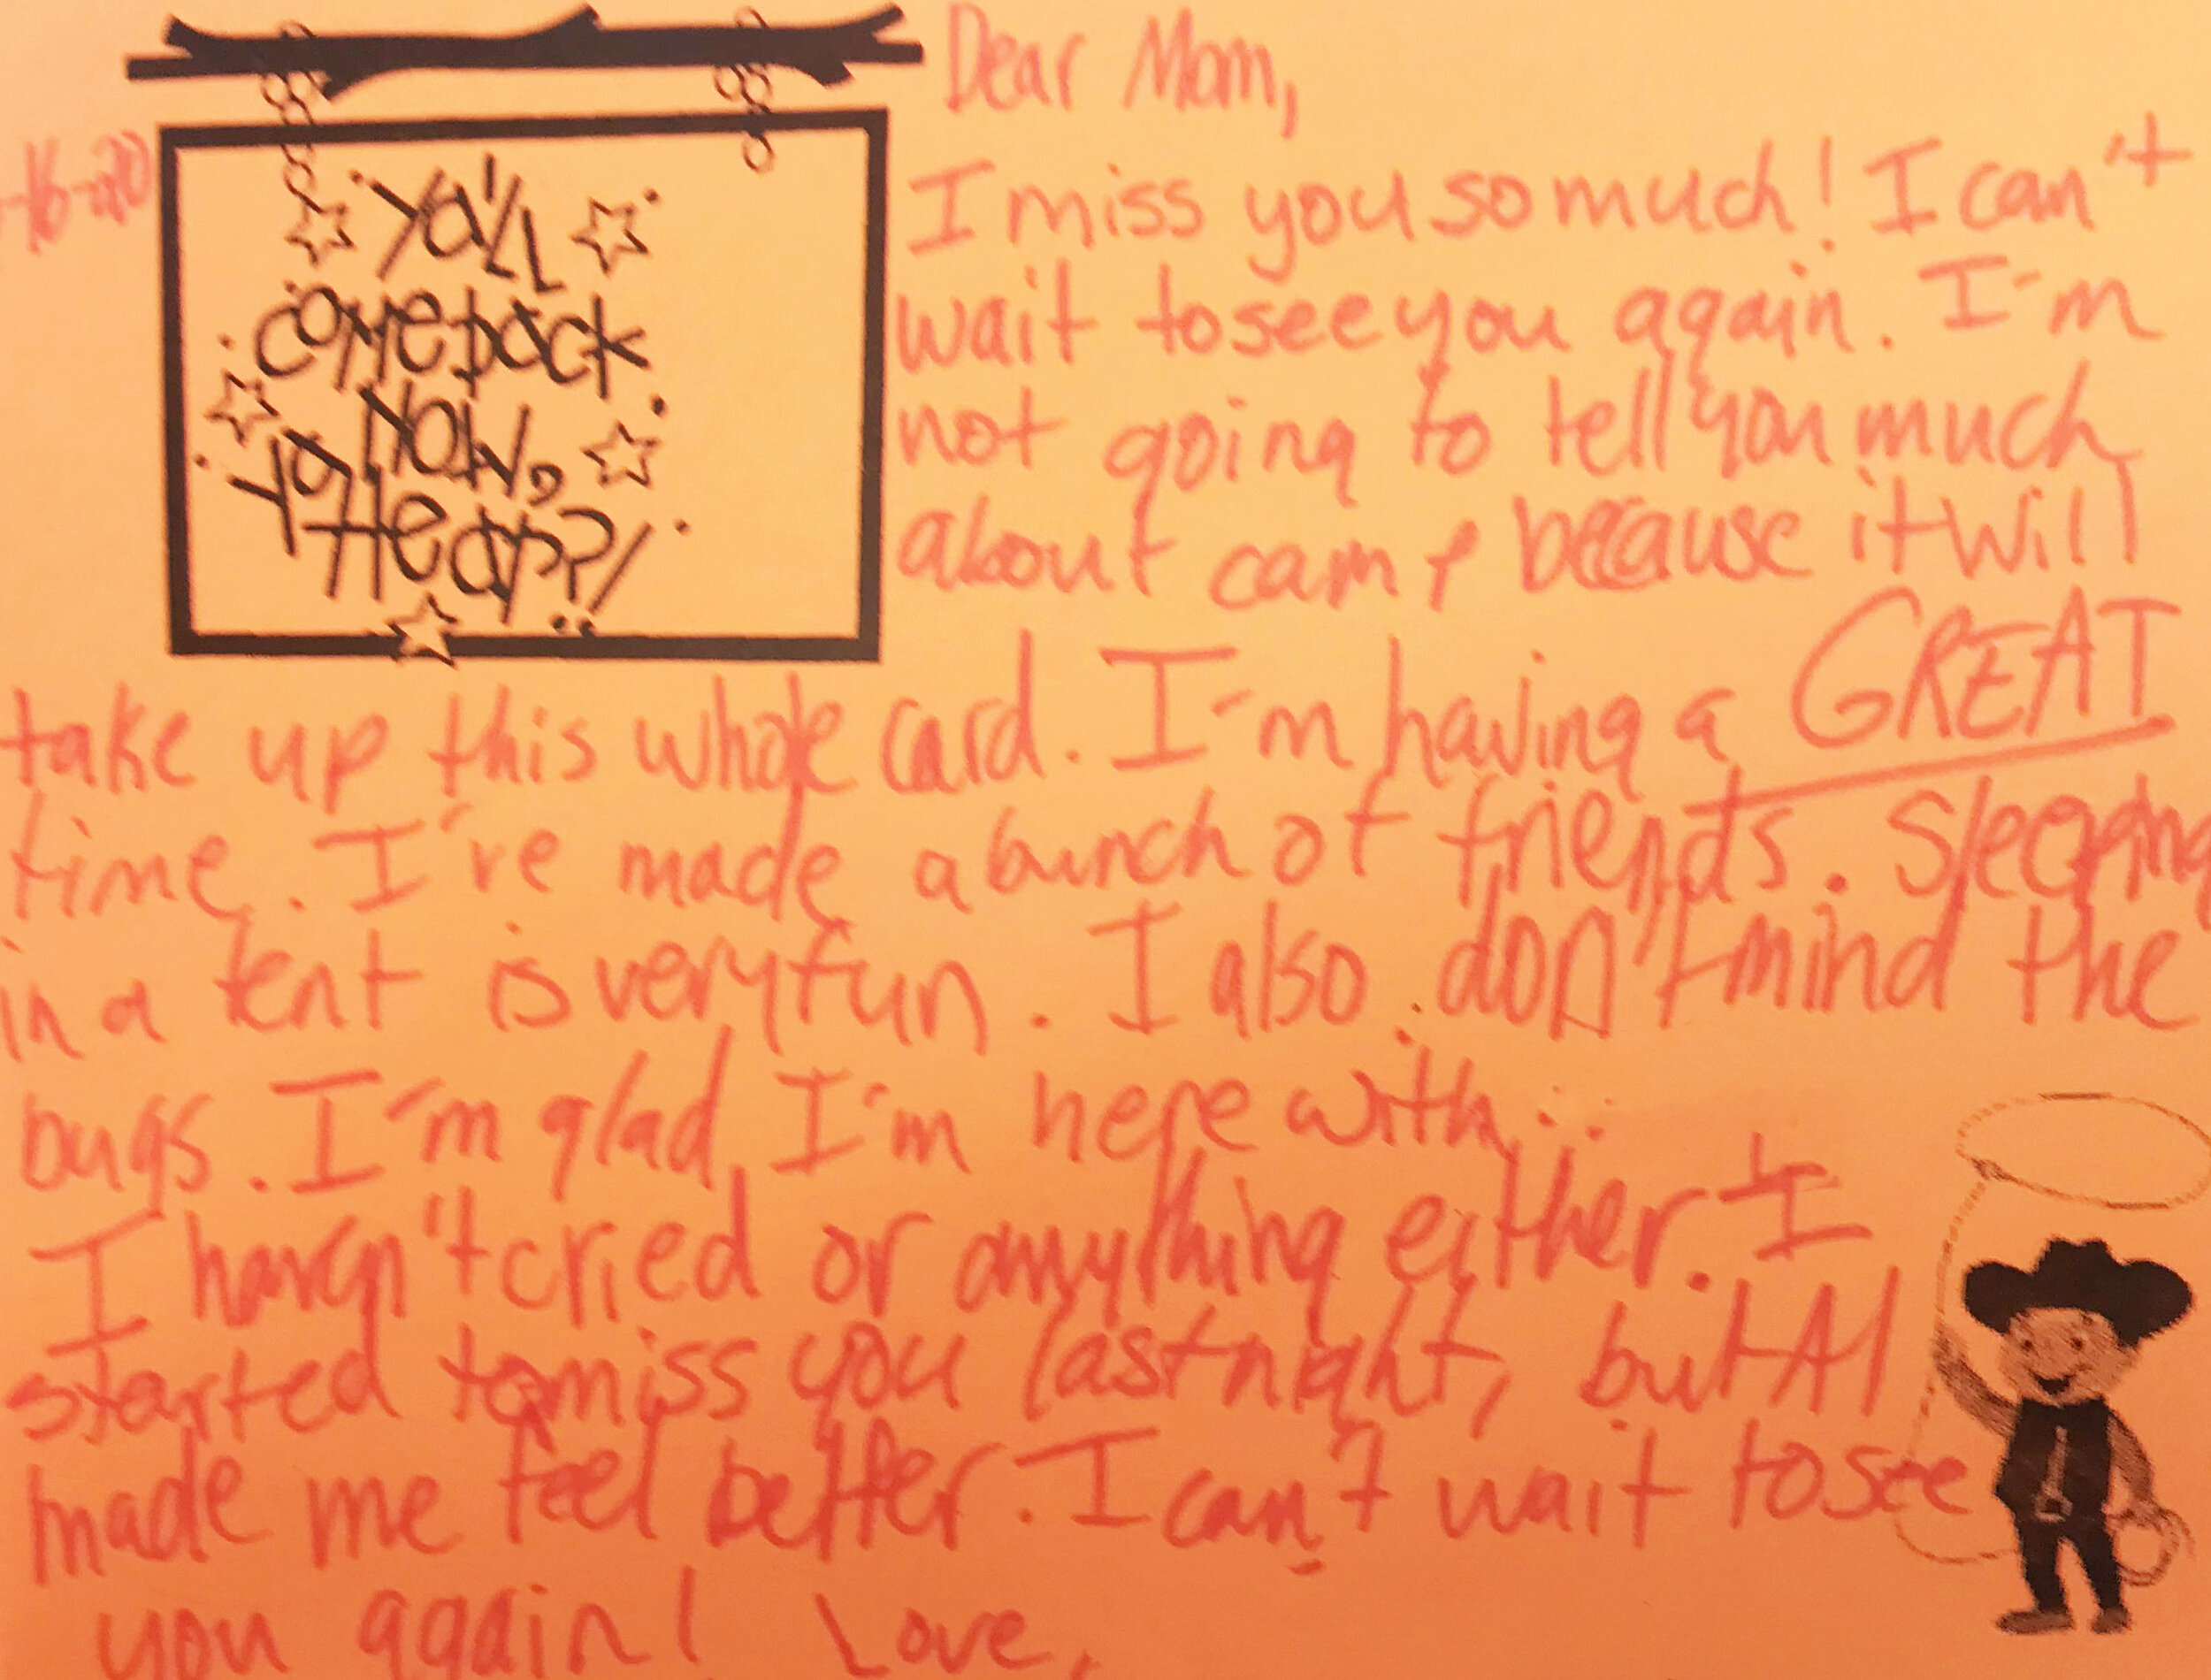 Dear Mom,
-16-20
Ya'll
come back
Now,
Ya Hear?!
I miss you so much! I can't
wait to see you again. I'm
not going to tell you much
about camp because it will
take up this whole card. I'm having a GREAT
time. I've made a bunch of friends. Sleeping
in a tent is very fun. I also don't mind the
bugs. I'm glad I'm here with...
I haven't cried or anything either. I
started to miss you last night, but Al
made me feel better. I can't wait to see
you again! Love,